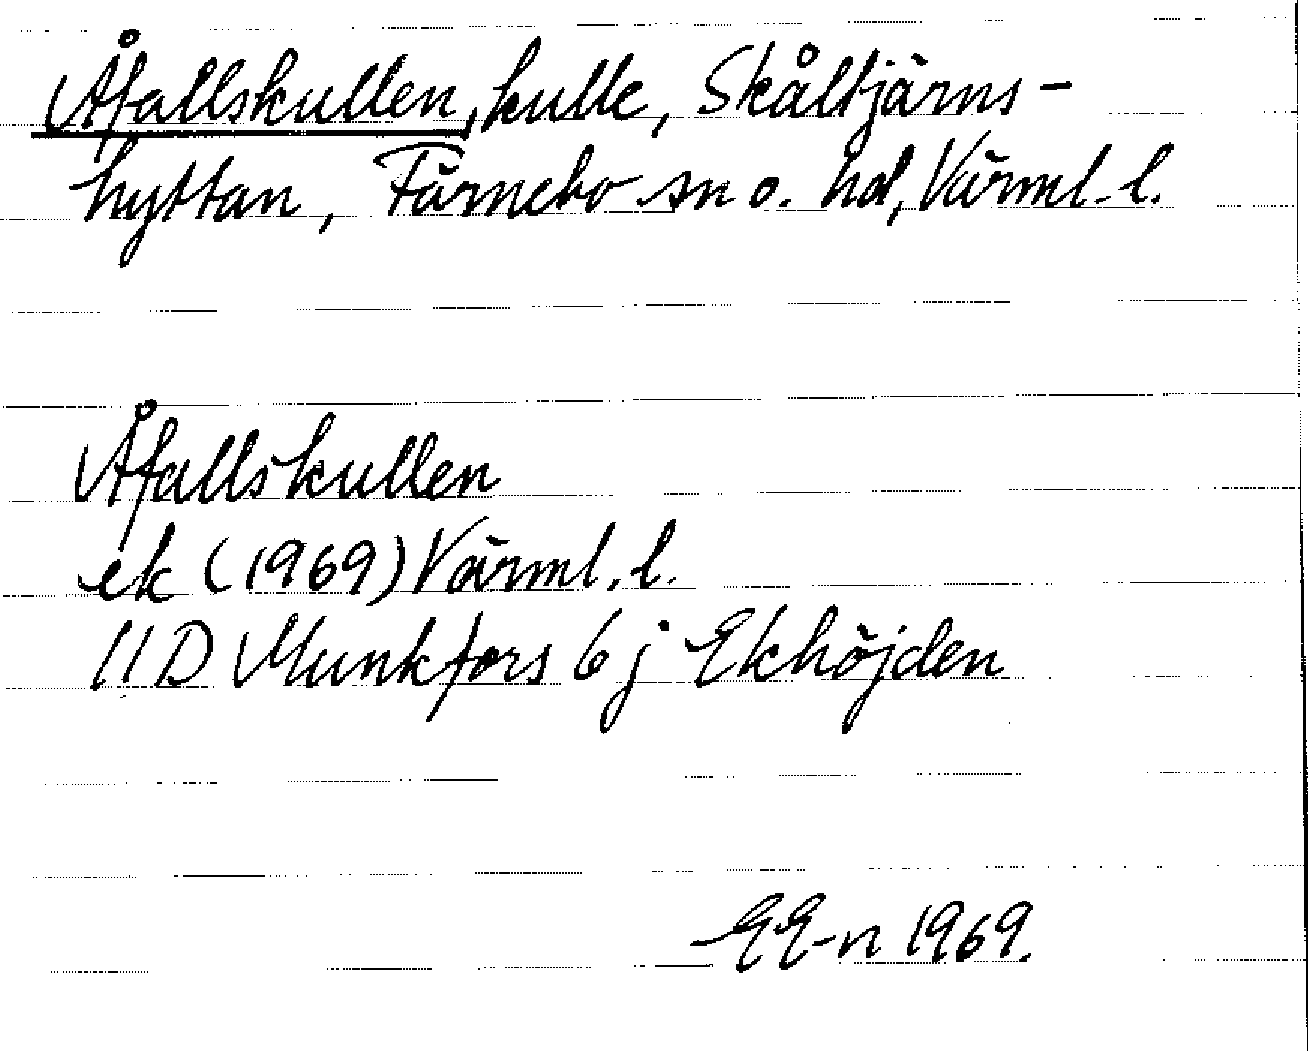 Åfallskullen, kulle, Skåltjärns-
hyttan, Färnebo sn o. hd, Värml. l.
Åfallskullen
ek (1969) Värml. l.
11D Munkfors 6j Ekhöjden
EE-n 1969.